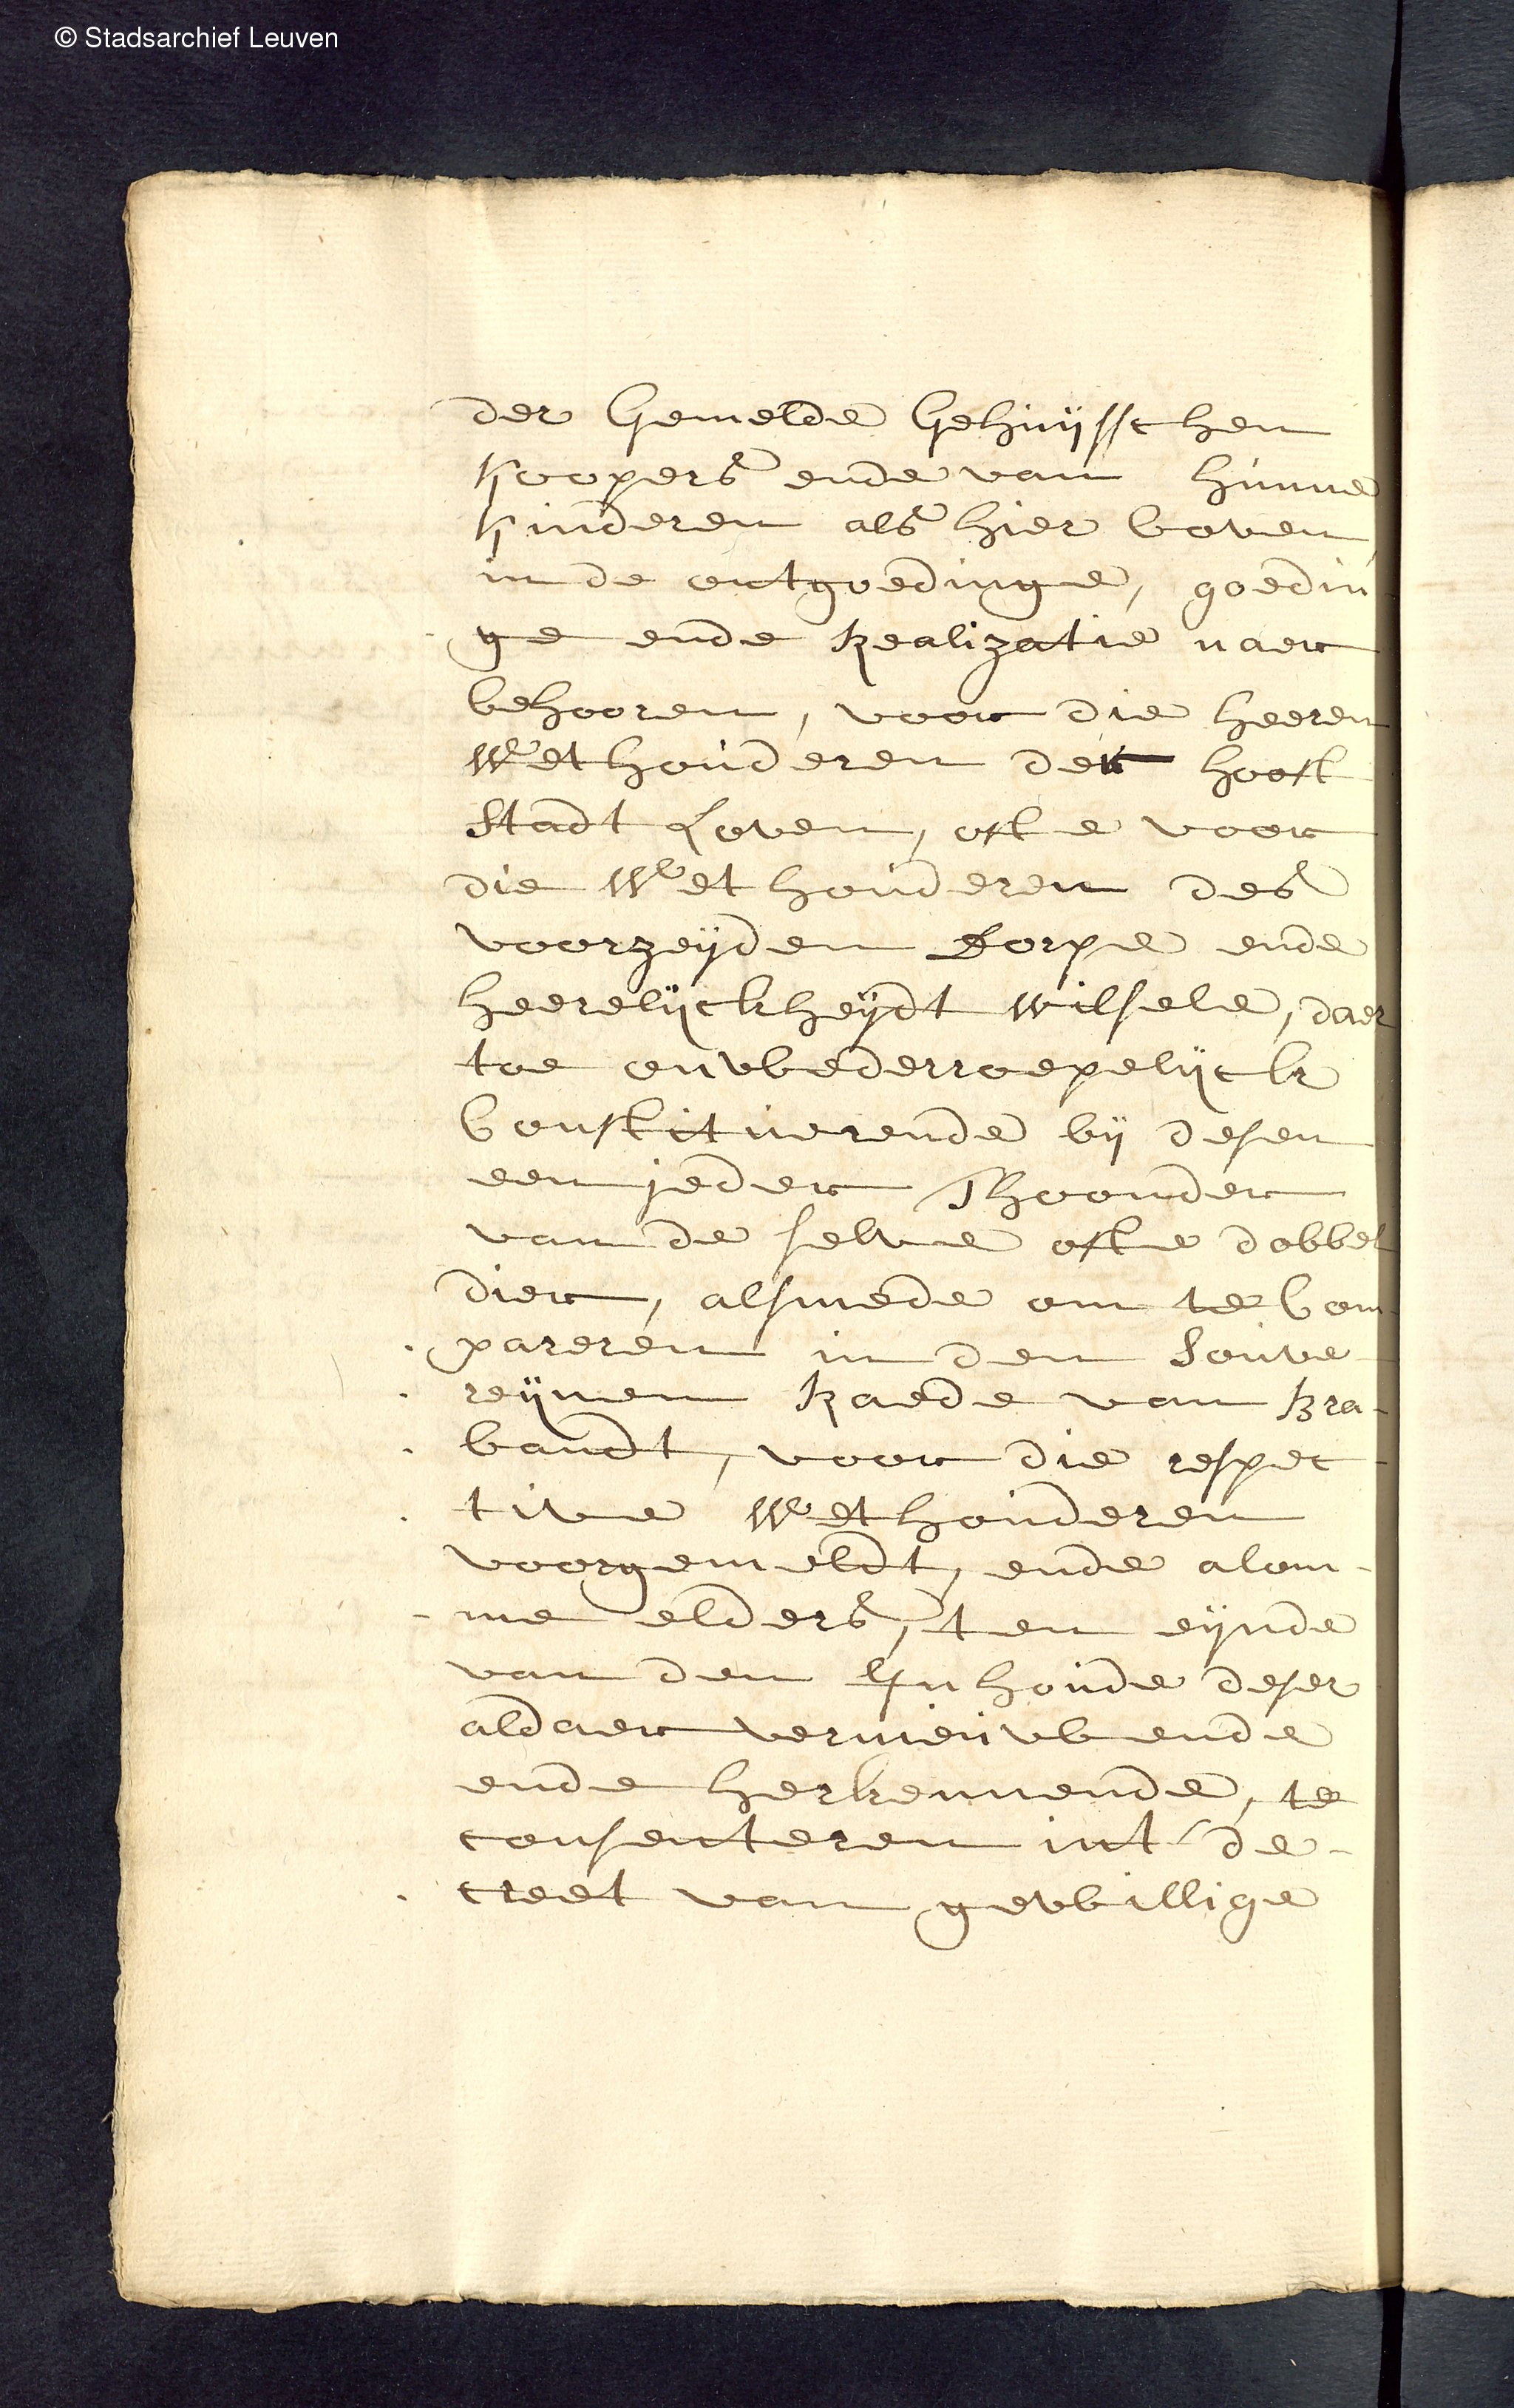 © Stadsarchief Leuven
der Gemelde Gehuijsschen
Koopers ende van hunne
Kinderen als hier boven
in de ontgoedinge, goedin
ge ende Realizatie naer
behooren, voor die heeren
Wethouderen der hooft
Stadt Loven, ofte voor
die Wethouderen des
voorzeijden Dorpe ende
heerelijckheijdt wilsele, daer
toe onwederroepelijck
Constituerende bij desen
een jeder Thoonder
van de selve ofte dobbel
dier, alsmede om te Com
pareren in den Souve
reijnen Raede van Bra-
bandt, voor die respec
tive Wethouderen
voorgemeldt, ende alom-
me elders, ten eijnde
van den Inhoude deser
aldaer vernieuwende
ende herkennende, te
consenteren int' de-
creet van gewillige